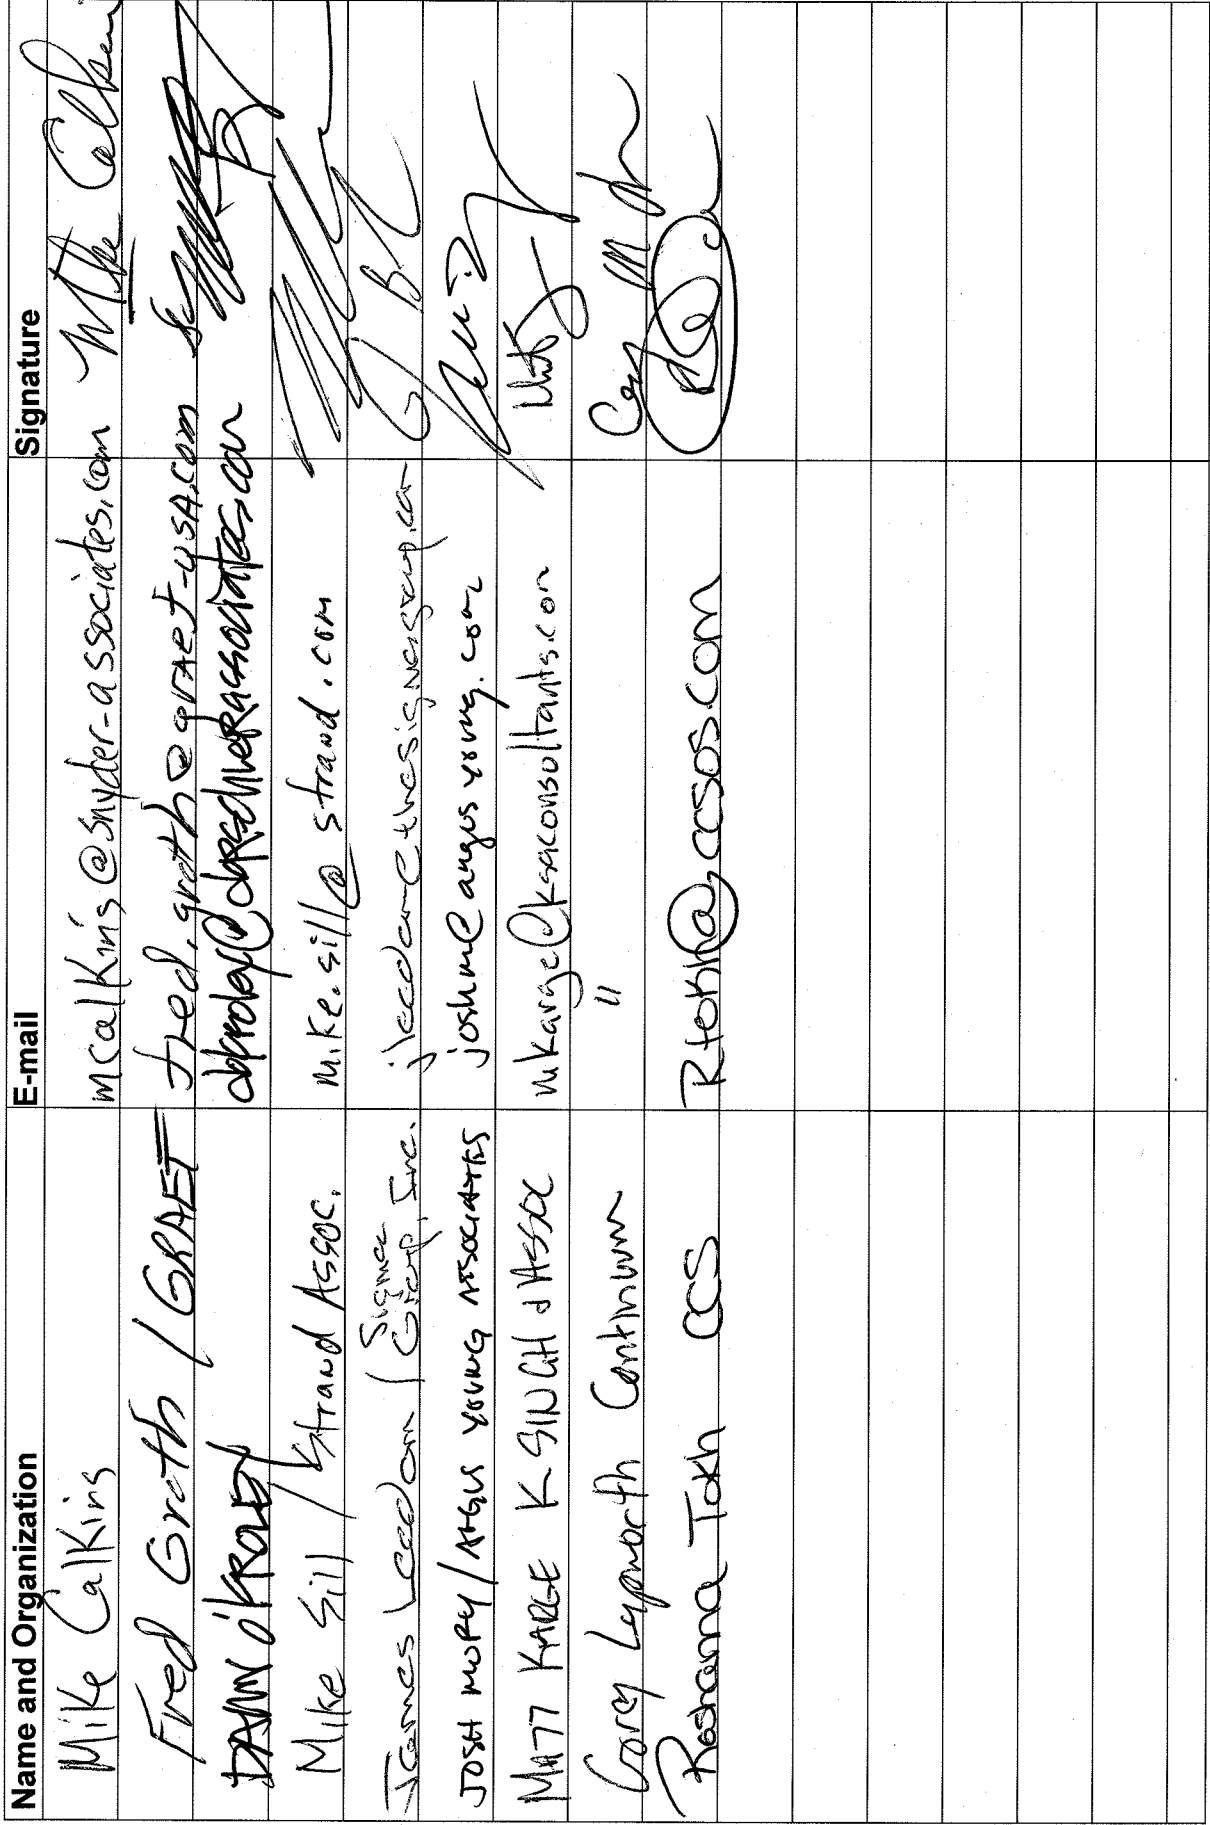 Name and Organization E-mail Signature
Mike Calkins mcalkins@snyder-associates.com Mike Calkins
Fred Groth / GRAEF fred.groth@graef-USA.com
DANN O'KROLEY
Mike Sill / Strand Assoc. mike.sill@strand.com
James Leedom / Sigma Group, Inc. jleedom@thesigmagroup.com
JOSH MURY / ANGUS YOUNG ASSOCIATES joshm@angusyoung.com
MATT KARGE K SINGH & ASSOC mkarge@ksaconsultants.com
Corey Continuum "
Roshanna Tokh CCS